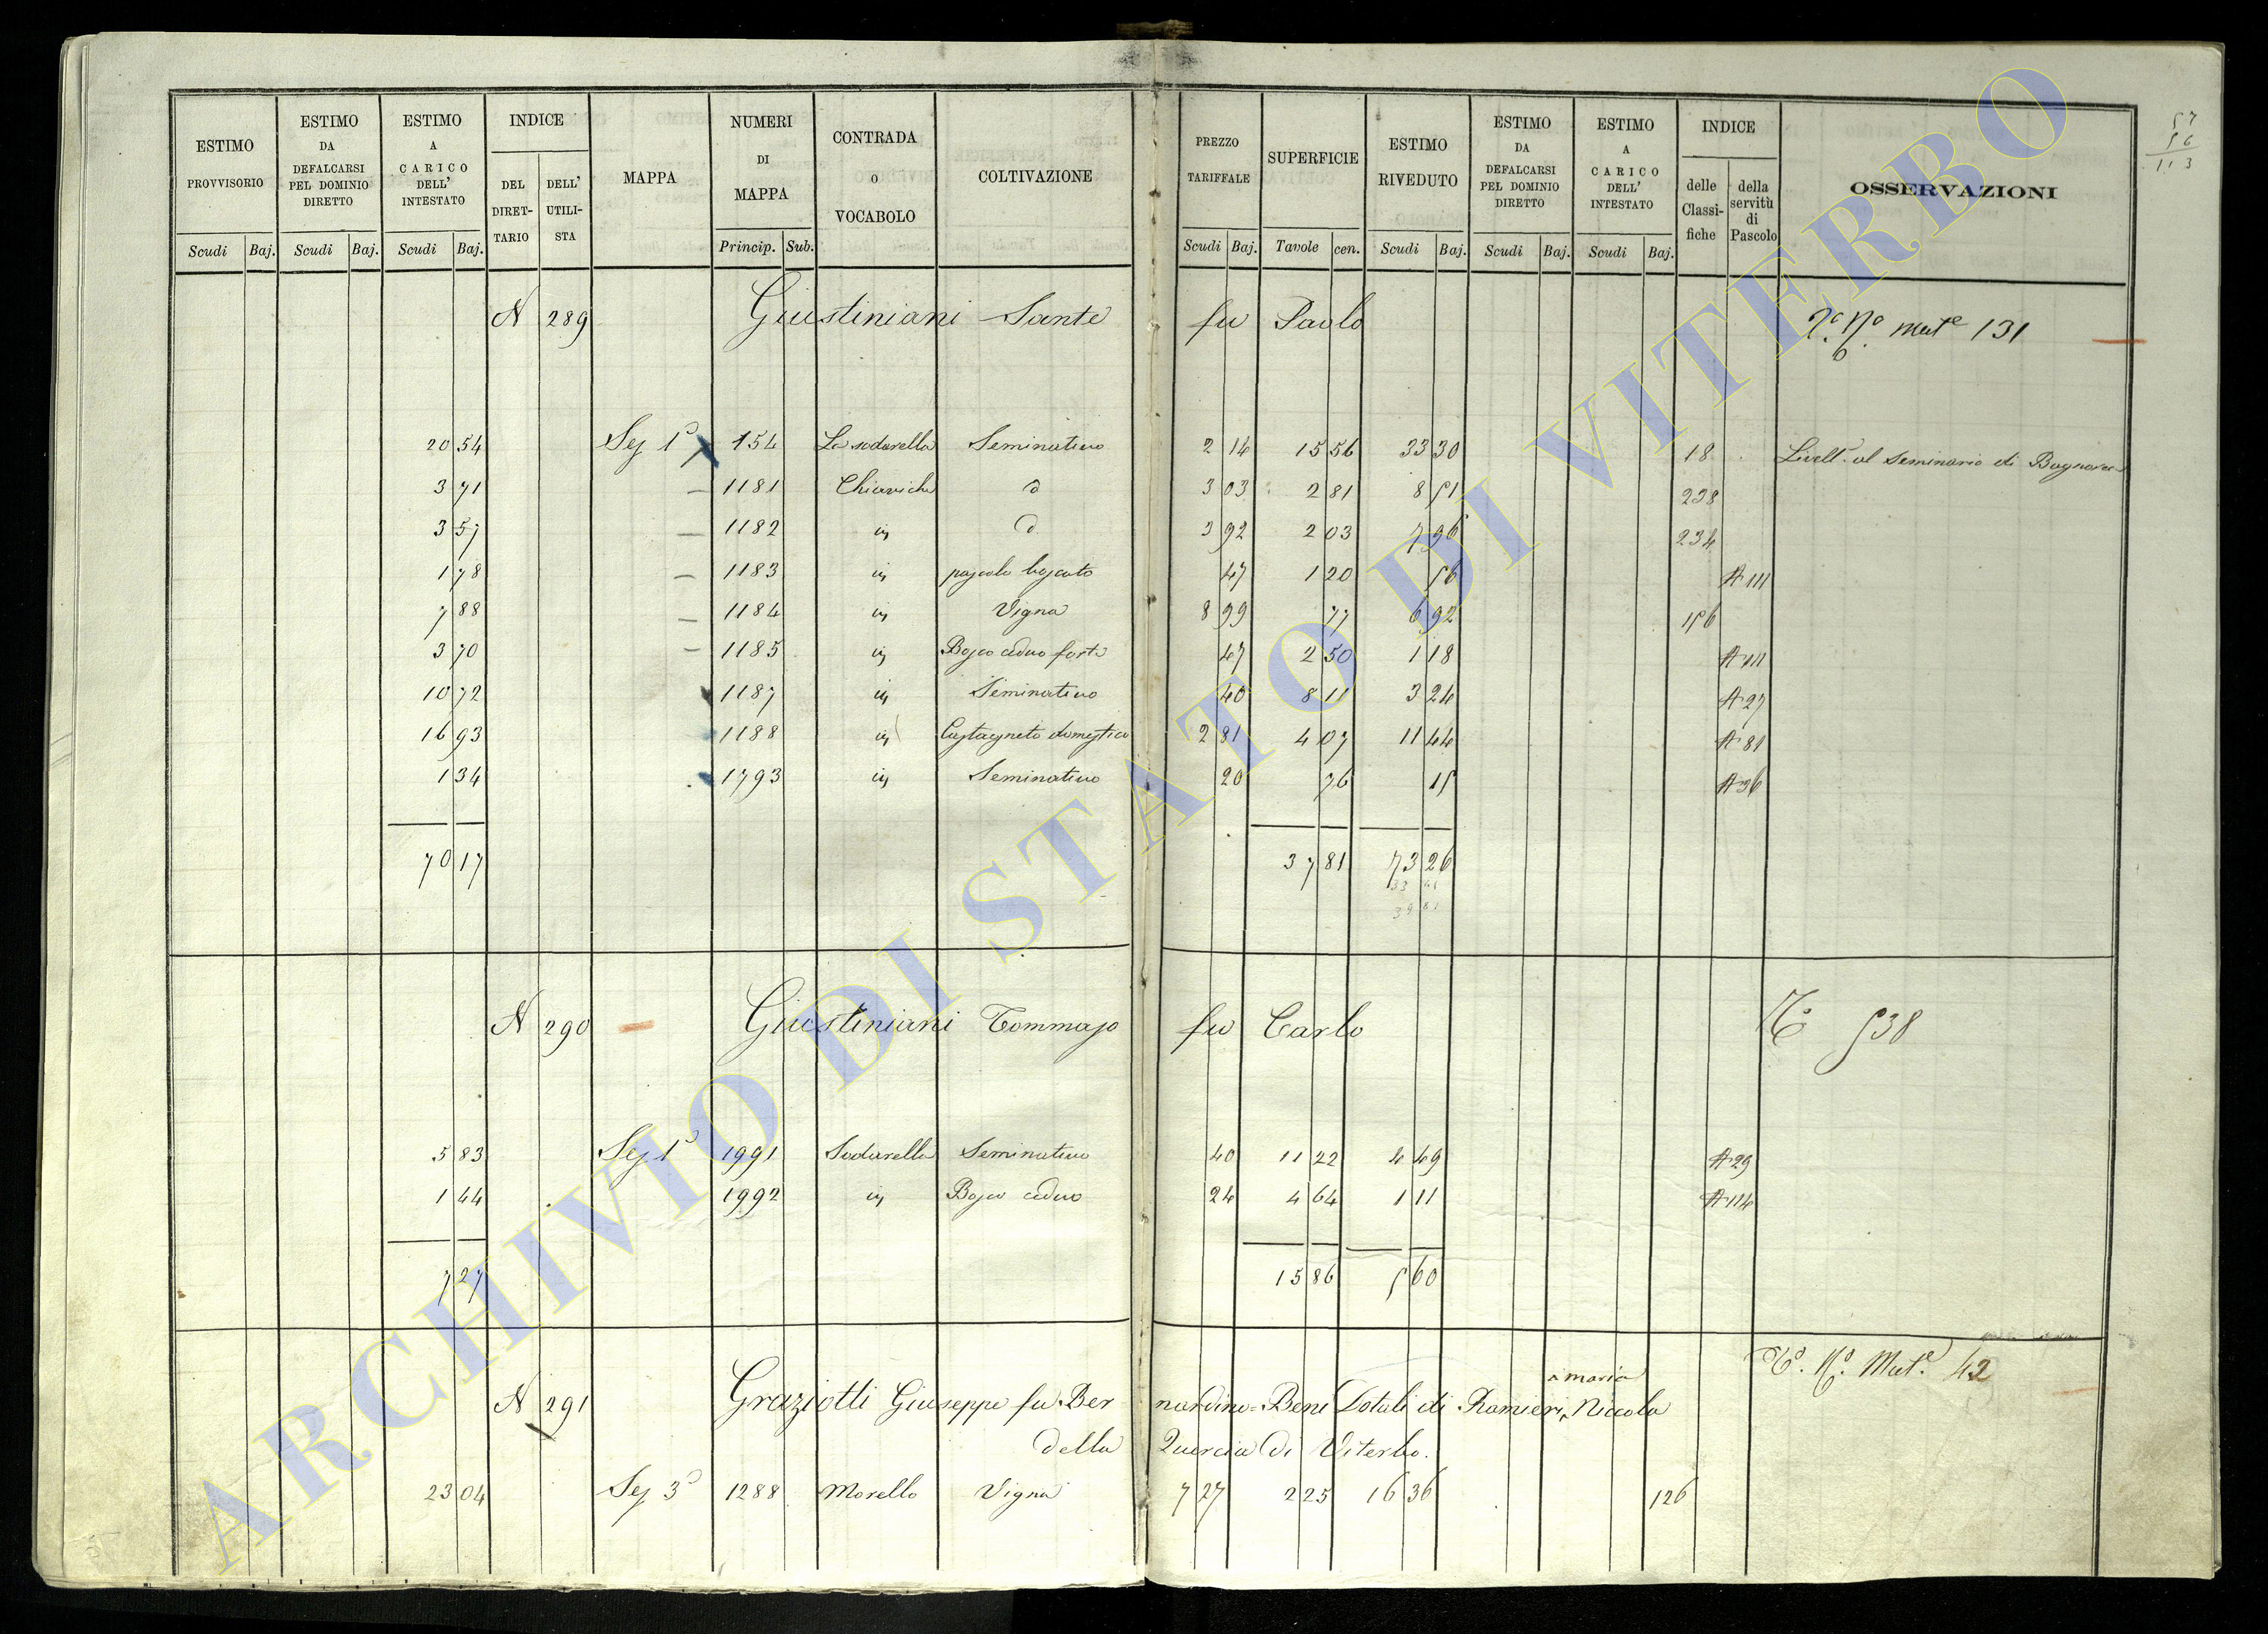 ESTIMO PROVVISORIO
Scudi Baj.
ESTIMO DA DEFALCARSI PEL DOMINIO DIRETTO
Scudi Baj.
ESTIMO A CARICO DELL' INTESTATO
Scudi Baj.
INDICE
DEL DIRET- TARIO
DELL' UTILI- STA
MAPPA
NUMERI DI MAPPA
Princip. Sub.
CONTRADA O VOCABOLO
COLTIVAZIONE
PREZZO TARIFFALE
Scudi Baj.
SUPERFICIE
Tavole cen.
ESTIMO RIVEDUTO
Scudi Baj.
ESTIMO DA DEFALCARSI PEL DOMINIO DIRETTO
Scudi Baj.
ESTIMO A CARICO DELL' INTESTATO
Scudi Baj.
INDICE
delle Classi- fiche
della servitù di Pascolo
OSSERVAZIONI
57
56
113
N 289 Giustiniani Sante fu Paolo mut.e 131
20 54 Sez 1a 154 La sodarella Seminativo 2 14 15 56 33 30 18 Livell. al Seminario di Bagnorea
3 71 1181 Chiaviche d 3 03 2 81 8 51 238
3 57 1182 in d 3 92 2 03 7 96 234
1 78 1183 in pascolo boscato 47 1 20 56 A 111
7 88 1184 in Vigna 8 99 77 6 92 156
3 70 1185 in Bosco ceduo forte 47 2 50 1 18 A 111
10 72 1187 in Seminativo 40 8 11 3 24 A 27
16 93 1188 in Castagneto domestico 2 81 4 07 11 44 A 81
1 34 1793 in Seminativo 20 76 15 A 36
70 17 37 81 73 26
N 290 Giustiniani Tommaso fu Carlo 538
5 83 Sez 1a 1991 Sodarella Seminativo 40 11 22 4 49 A 29
1 44 1992 in Bosco ceduo 24 4 64 1 11 A 114
7 27 15 86 5 60
N 291 Graziotti Giuseppe fu Bernardino = Beni Dotali di Ranieri maria Niccola Mut.e 42
della Quercia di Viterbo.
23 04 Sez 3a 1288 Morello Vigna 7 27 2 25 16 36 126
ARCHIVIO DI STATO DI VITERBO